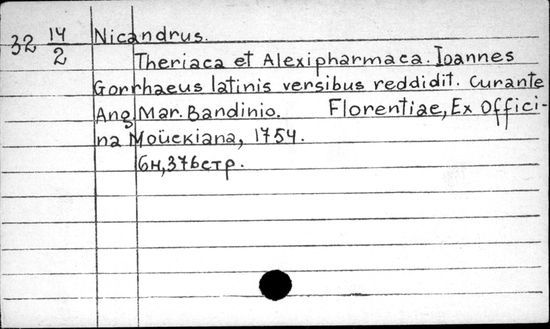 32 14/2 Nicandrus.
Theriaca et Alexipharmaca. Ioannes
Gorrhaeus latinis versibus reddidit. Curante
Ang. Mar. Bandinio. Florentiae, Ex Offici-
na Moückiana, 1754.
6н, 376 стр.